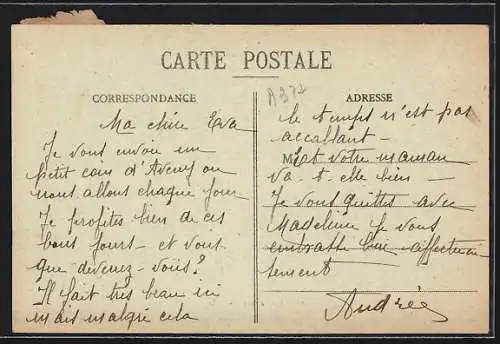 CARTE POSTALE
CORRESPONDANCE
Ma chère Eva
Je vous envoie un
petit coin d'Aveny ou
nous allons chaque jour
Je profites bien de ces
bons jours - et vous
que devenez-vous?
Il fait très beau ici
mais malgré cela
A371
ADRESSE
le temps n'est pas
accablant -
M
Et votre maman
va-t-elle bien -
Je vous quittes avec
Madeleine Je vous
embrasse bien affectueu
sement
Andrée